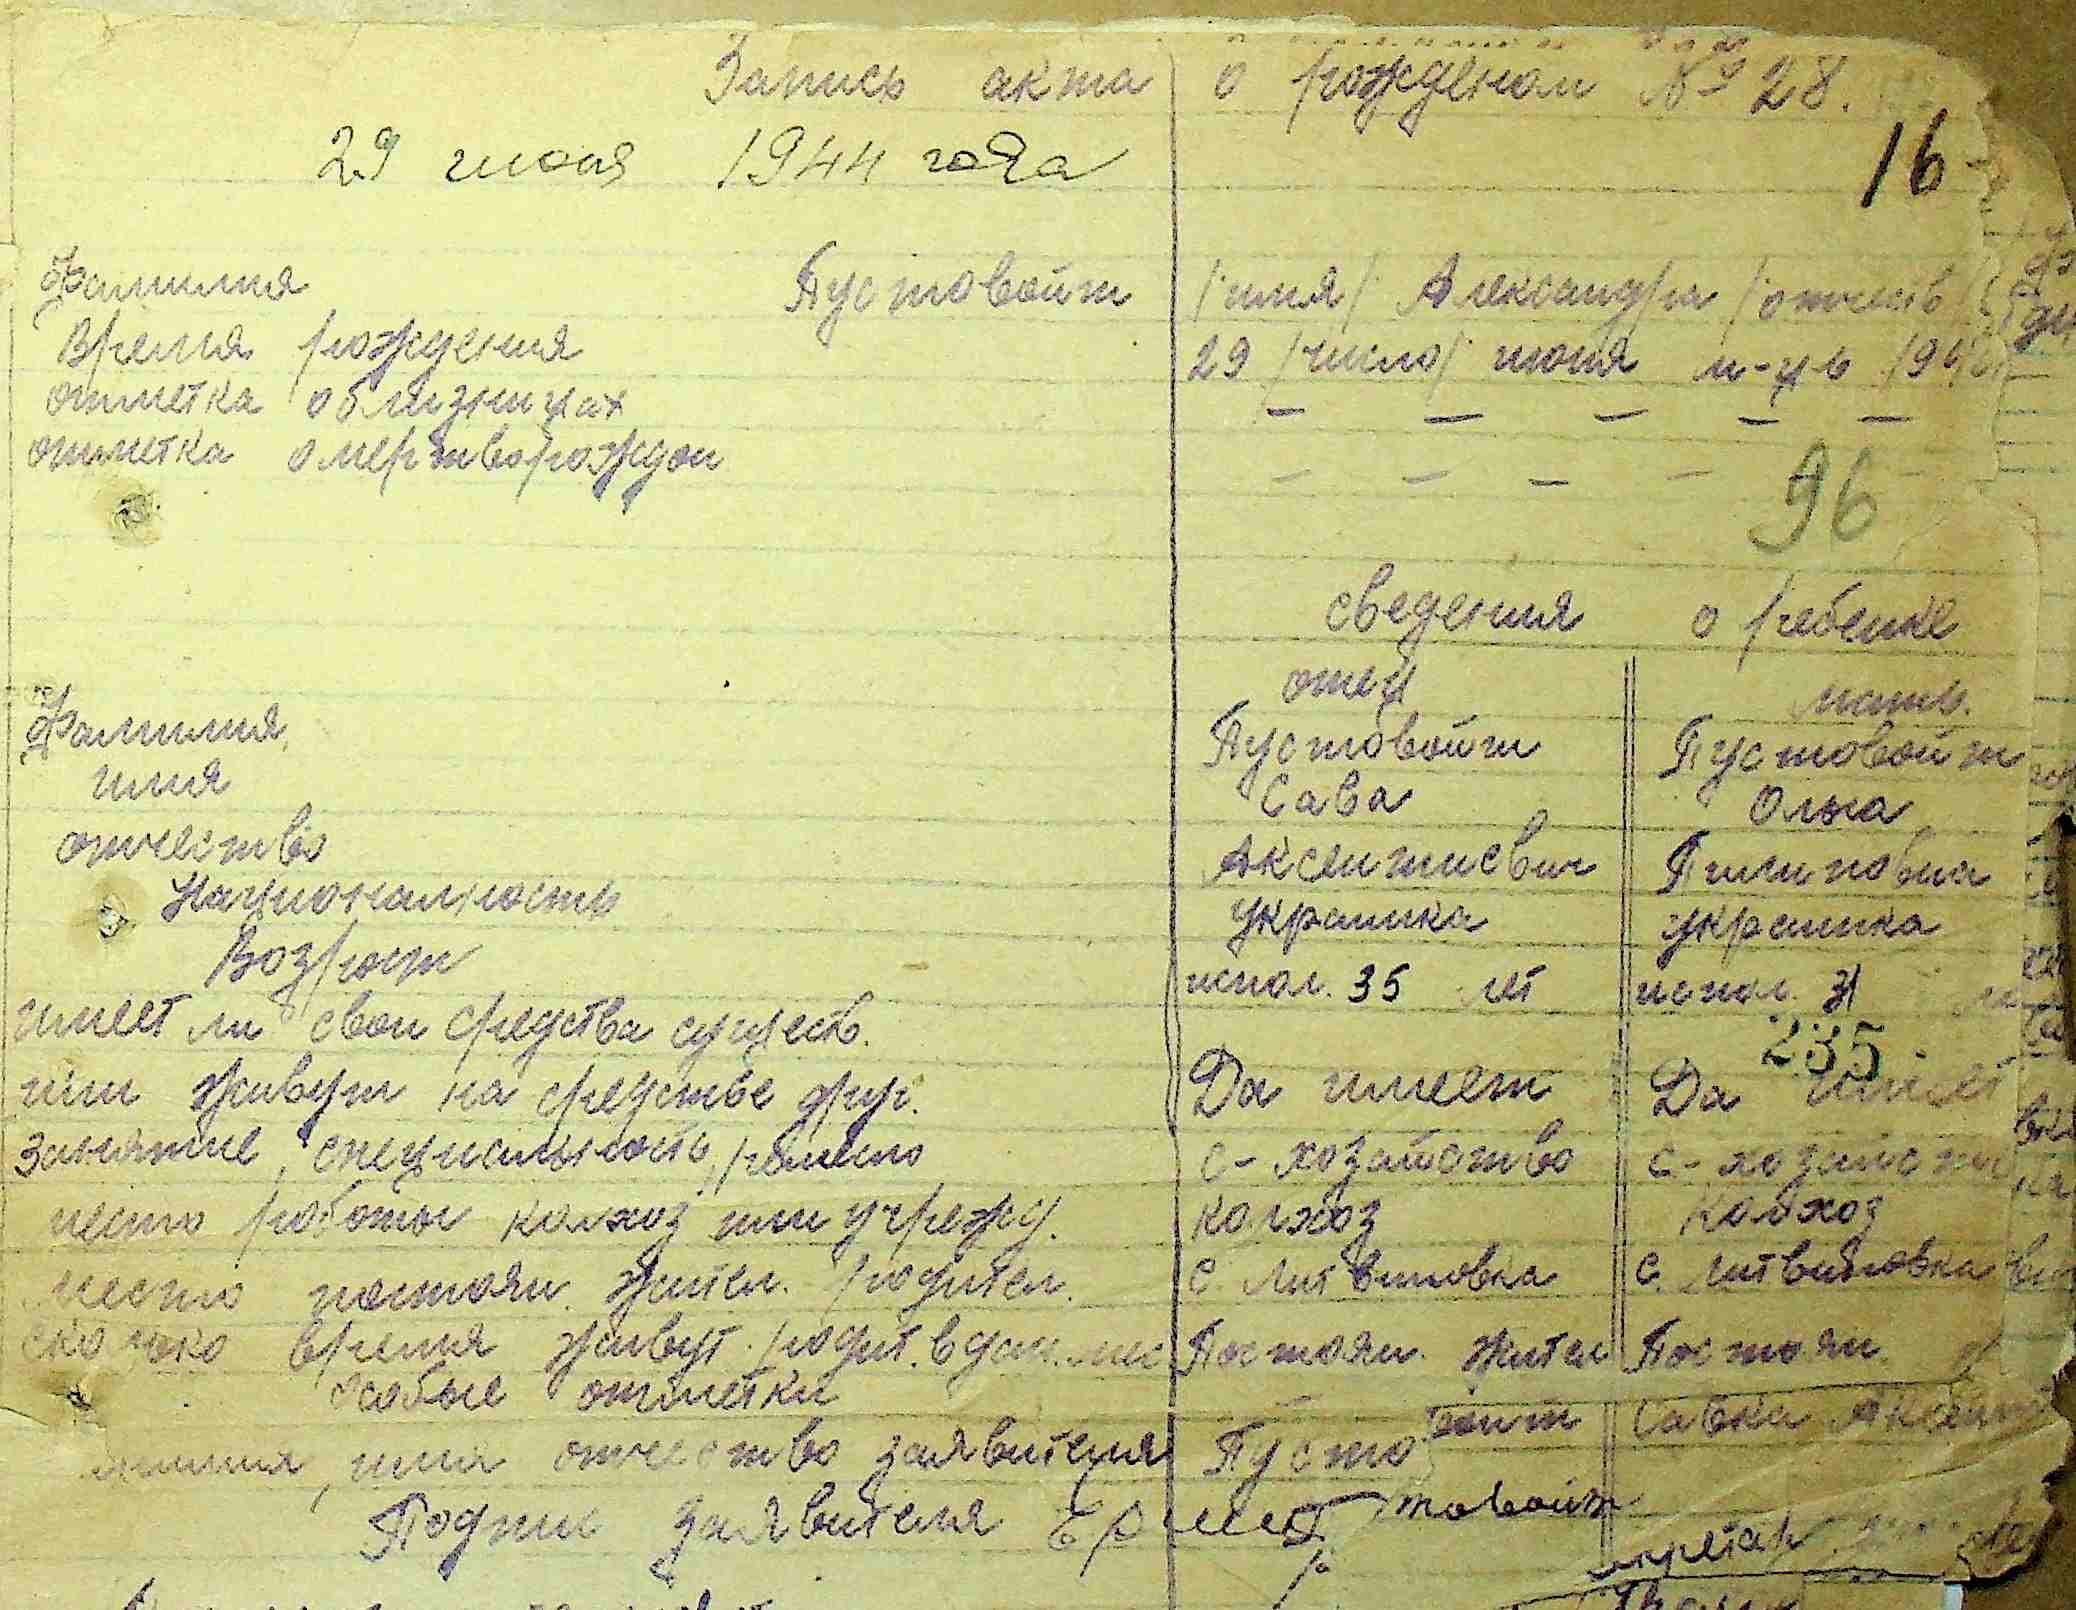 Запись акта о рождении № 28.
29 июня 1944 года
16
Фамилия Пустовойт /имя/ Александра /отчеств/
Время рождения 29 /число/ июня м-ць 194
отметка о близницах — — — — —
отметка о мертворождон — — — —
96
сведения о ребенке
отец мать.
Фамилия Пустовойт Пустовойт
имя Сава Ольга
отчество Аксентиевич Пилиповна
Националность украинка украинка
Возраст испол. 35 лет испол. 31
имеет ли свои средства сущест.
235
или живут на средстве друг. Да имеет Да имеет
занятие, специальность, ремесло с-хозяйство с-хозяйство
место работы колхоз или учрежд. колхоз колхоз
место постоян. жител. родител. с. Литвиновка с. Литвиновка
сколько время живут родит. в дан. мес Постоян. жител Постоян.
особые отметки
имя отчество заявителя Пусто войт Савка Аксент
Подпис заявителя товойт